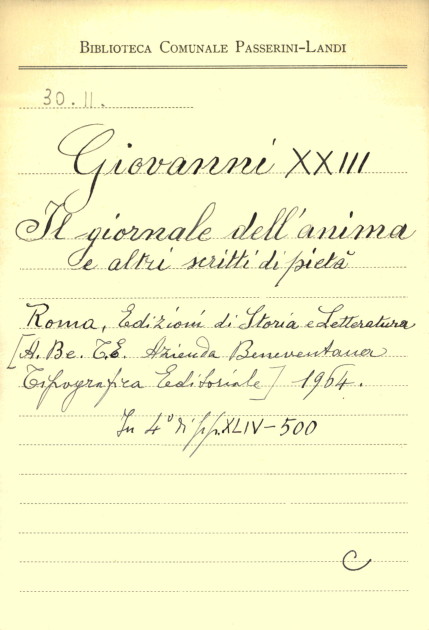 BIBLIOTECA COMUNALE PASSERINI-LANDI
30.II.
Giovanni XXIII
Il giornale dell'anima
e altri scritti di pietà
Roma, Edizioni di Storia e Letteratura
[A.Be.T.E. Azienda Beneventana
Tipografica Editoriale] 1964.
In 4º di pp. XLIV-500
C